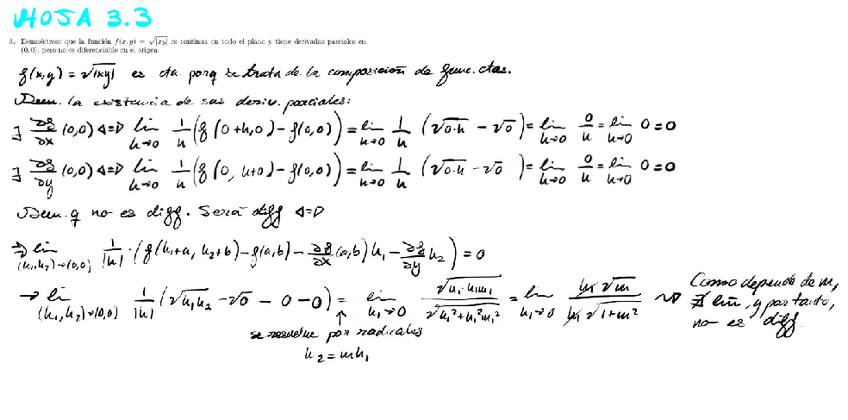 HOJA 3.3
3. Demuéstrese que la función f(x, y) = √|xy| es continua en todo el plano y tiene derivadas parciales en
(0, 0), pero no es diferenciable en el origen
f(x,y) = √|xy| es cta porq se trata de la composición de func. ctas.
Dem. la existencia de sus deriv. parciales:
∃ ∂f/∂x (0,0) ⇔ lim h→0 1/h (f(0+h,0) - f(0,0)) = lim h→0 1/h (√0·h - √0) = lim h→0 0/h = lim h→0 0 = 0
∃ ∂f/∂y (0,0) ⇔ lim h→0 1/h (f(0, h+0) - f(0,0)) = lim h→0 1/h (√0·h - √0) = lim h→0 0/h = lim h→0 0 = 0
Dem. q no es diff. Será diff ⇔
⇒ lim (h₁,h₂)→(0,0) 1/|h| · (f(h₁+a, h₂+b) - f(a,b) - ∂f/∂x (a,b) h₁ - ∂f/∂y h₂) = 0
→ lim (h₁,h₂)→(0,0) 1/|h| (√h₁h₂ - √0 - 0 - 0) = lim h₁→0 √h₁·h₁m / √h₁²+h₁²m² = lim h₁→0 h₁√m / h₁√1+m²
se resuelve por radicales
h₂ = mh₁
Como depende de m,
∄ lim, y por tanto,
no es diff.